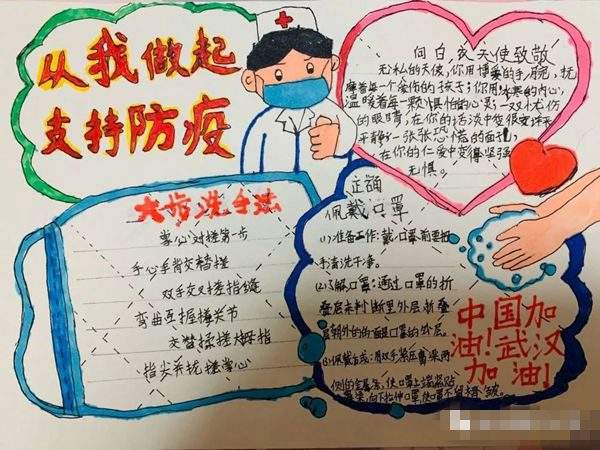 从我做起
支持防疫
向白衣天使致敬
无私的天使，你用博爱的手腕，抚
摩着每一个爱伤的孩子；你用冰寒的内心，
温暖着每一颗惧怕的心灵；一双忧伤
的眼睛，在你的
平静；一张张恐慌的面孔，
在你的仁爱中变得坚强
无惧。
六步洗手法
掌心对搓第一步
手心手背交替搓
双手交叉搓指缝
弯曲互握搓关节
交替揉搓大拇指
指尖并拢搓掌心
正确
佩戴口罩
(1)准备工作：戴口罩前要把
手清洗干净。
(2)了解口罩：通过口罩的折
叠层来判断里外层，折叠
层朝外的面是口罩的外层。
(3)佩戴方式：用双手紧压鼻梁两
侧的金属条，使口罩上端紧贴
鼻梁，向下拉伸口罩，使口罩不留有褶皱。
中国加
油！武汉
加油！